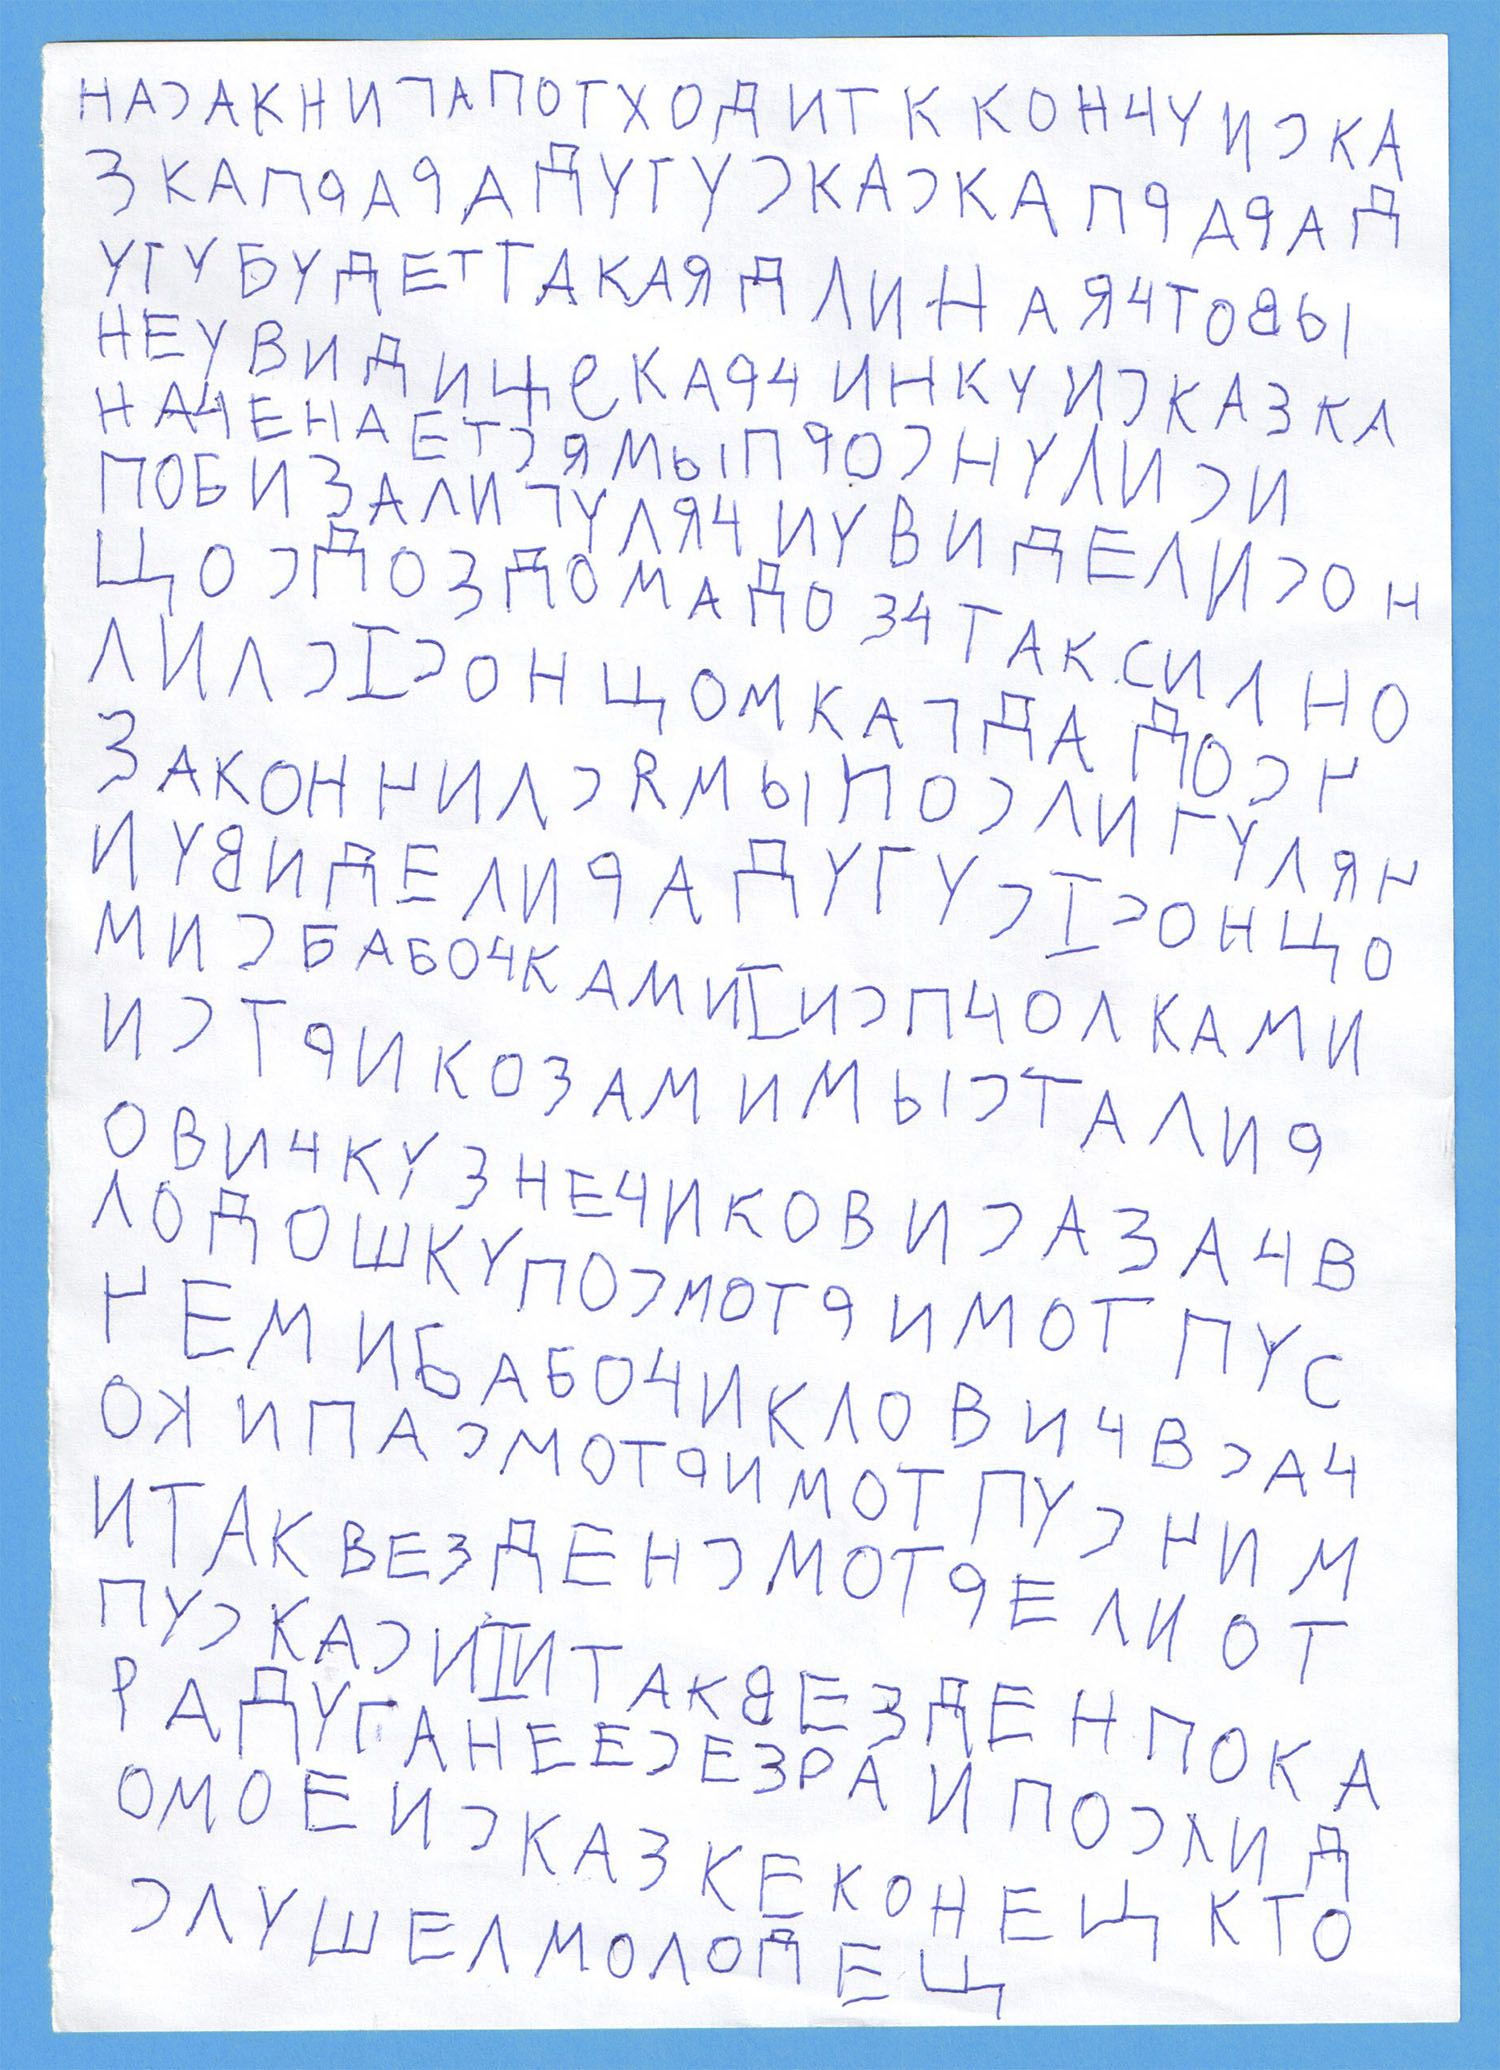 НАСАКНИГАПОТХОДИТККОНЧУИСКА
ЗКАПРАРАДУГУСКАСКАПРАРАД
УГУБУДЕТТАКАЯДЛИНАЯЧТОВЫ
НЕУВИДИЩЕКАРЧИНКУИСКАЗКА
НАЧЕНАЕТСЯМЫПРОСНУЛИСИ
ПОБИЗАЛИГУЛЯЧИУВИДЕЛИСОН
ЦОСДОЗДОМАДОЗЧТАКСИЛНО
ЛИЛСІСОНЦОМКАГДАДОСЧ
ЗАКОНЧИЛСЯМЫПОСЛИГУЛЯЧ
ИУВИДЕЛИРАДУГУСІСОНЦО
МИСБАБОЧКАМИІИСПЧОЛКАМИ
ИСТРИКОЗАМИМЫСТАЛИЯ
ОВИЧКУЗНЕЧИКОВИСАЗАЧВ
ЛОДОШКУПОСМОТРИМОТПУС
ЧЕМИБАБОЧИКЛОВИЧВСАЧ
ОКИПАСМОТРИМОТПУСЧИМ
ИТАКВЕЗДЕНСМОТРЕЛИОТ
ПУСКАСИІИТАКВЕЗДЕНПОКА
РАДУГАНЕЕСЕЗРАИПОСЛИД
ОМОЕИСКАЗКЕКОНЕЦКТО
СЛУШЕЛМОЛОДЕЦ